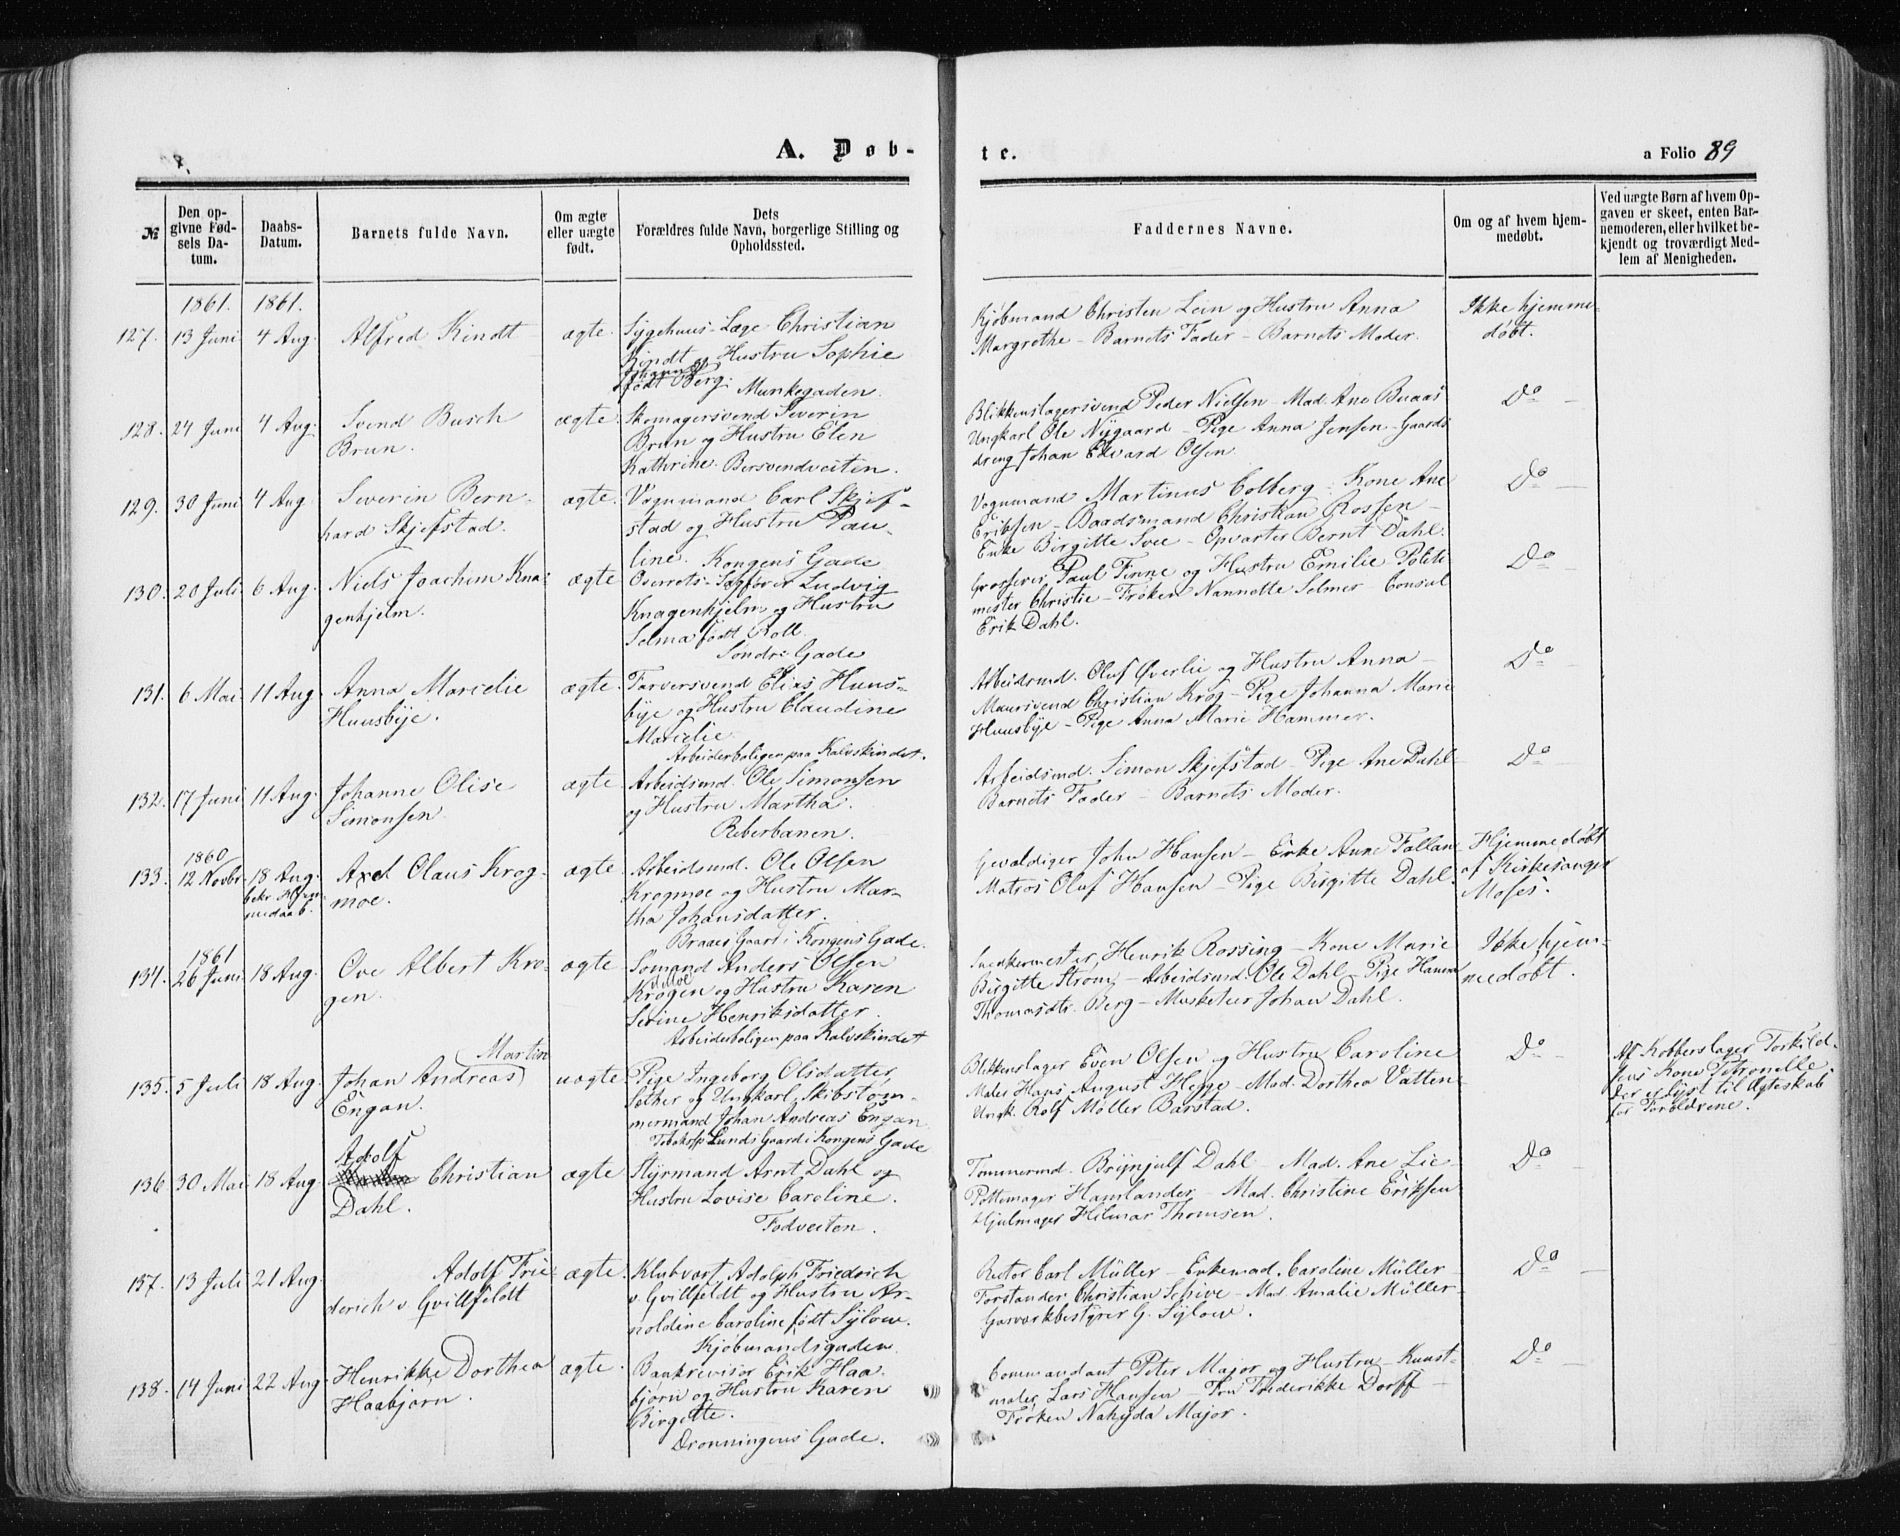 A. Døb-
te.
a Folio 89
№
Den opgivne Fødsels Datum.
Daabs-Datum.
Barnets fulde Navn.
Om ægte eller uægte født.
Dets Forældres fulde Navn, borgerlige Stilling og Opholdssted.
Faddernes Navne.
Om og af hvem hjemmedøbt.
Ved uægte Børn af hvem Opgaven er skeet, enten Barnemoderen, eller hvilket bekjendt og troværdigt Medlem af Menigheden.
1861. 1861.
127. 13 Juni 4 Aug. Alfred Kindt ægte. Sygehuus-Læge Christian
Kindt og Hustru Sophie
Johanna
født Berg: Munkegaden.
Kjøbmand Christen Lein og Hustru Anna
Margrethe - Barnets Fader - Barnets Moder.
Ikke hjemme-
døbt.
128. 24 Juni 4 Aug. Svend Busch
Brun.
ægte. Skomagersvend Severin
Brun og Hustru Elen
Kathrine. Bersvendveiten.
Blikkenslagersvend Peder Nielsen - Mad. Ane Buaas
Ungkarl Ole Nygaard - Pige Anna Jensen - Gaards
dreng Johan Edvard Olsen.
Do -
129. 30 Juni 4 Aug. Severin Bern-
hard Skjefstad.
ægte. Vognmand Carl Skjef-
stad og Hustru Pau-
line. Kongens Gade
Vognmand Martinus Colberg - Kone Ane
Eriksen - Baadsmand Christian Rossen -
Enke Birgitte Svee - Opvarter Bernt Dahl.
Do -
130. 20 Juli 6 Aug. Niels Joachim Kna-
genhjelm.
ægte Overrets-Sagfører Ludvig
Knagenhjelm og Hustru
Selma født Roll.
Søndre Gade
Grosserer Paul Finne og Hustru Emilie Politi
mester Christie - Frøken Nannette Selmer - Consul
Erik Dahl.
Do -
131. 6 Mai 11 Aug. Anna Marielie
Huusbye.
ægte. Farversvend Elias Huus-
bye og Hustru Claudine
Marielie.
Arbeiderboligen paa Kalvskindet.
Arbeidsmd. Oluf Øverlie og Hustru Anna -
Muursvend Christian Krog - Pige Johanna Marie
Huusbye - Pige Anna Marie Hammer.
Do -
132. 17 Juni 11 Aug. Johanne Olise
Simonsen.
ægte. Arbeidsmd. Ole Simonsen
og Hustru Martha.
Reberbanen.
Arbeidsmd. Simon Skjefstad - Pige Ane Dahl -
Barnets Fader - Barnets Moder.
Do -
1860
133. 12 Novbr. 18 Aug.
bekr. Hjem-
medaab.
Axel Olaus Krog-
moe.
ægte. Arbeidsmd. Ole Olsen
Krogmoe og Hustru Mar-
tha Johansdatter.
Braaes Gaard i Kongens Gade.
Gevaldiger John Hansen - Enke Anne Fallan
Matros Oluf Hansen - Pige Birgitte Dahl.
Hjemmedøbt
af Kirkesanger
Moses.
1861
134. 26 Juni 18 Aug. Ove Albert Kro-
gen.
ægte Sømand Anders Olsen
Krogen og Hustru Karen
Serine Henriksdatter.
Arbeiderboligen paa Kalvskindet
Snekermester Henrik Rossing - Kone Marie
Birgitte Strøm - Arbeidsmd. Ole Dahl - Pige Hanna
Thomasdtr. Berg - Musketeer Johan Dahl.
Ikke hjem-
medøbt.
135. 5 Juli 18 Aug. Johan Andreas Martin
Engan.
uægte. Pige Ingeborg Olsdatter
Sæther og Ungkarl, Skibstøm-
mermand Johan Andreas Engan
Lunds Gaard i Kongens Gade
Blikkenslager Even Olsen og Hustru Caroline
Maler Hans August Hegge - Mad. Dorthea Vatten-
Ungk. Rolf Møller Barstad.
Do -
Af Kobberslager Torkild-
sens Kone Petronelle.
Der er lyst til Ægteskab
for Forældrene.
136. 30 Mai 18 Aug. Adolf Christian
Dahl.
ægte Styrmand Arnt Dahl og
Hustru Lovise Caroline.
Fodveiten.
Tømmermd. Brynjulf Dahl - Mad. Ane Lie -
Pottemager Hamlander - Mad. Christine Eriksen
Hjulmager Hilmar Thomsen.
Do -
137. 13 Juli 21 Aug. Adolf Frie-
derich v. Gvillfeldt
ægte. Klubvært Adolph Friedrich
v. Gvillfeldt og Hustru Ar-
noldine Caroline født Sylow.
Kjøbmandsgaden.
Rector Carl Müller - Enkemad. Caroline Müller -
Forstander Christian Schive - Mad. Amalie Müller -
Gasværkbestyrer G. Sylow.
Do -
138. 14 Juni 22 Aug. Henrikke Dorthea
Haabjørn.
ægte. Bankrevisor Erik Haa
bjørn og Hustru Karen
Birgitte.
Dronningens Gade.
Commandant Peter Major og Hustru - Kunst-
maler Lars Hansen - Fru Frederikke Dorff -
Frøken Nahyda Major.
Do -